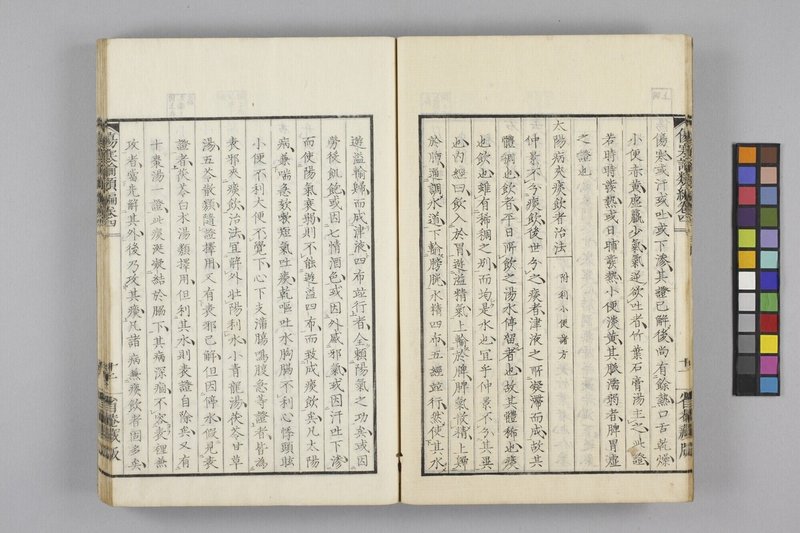 傷寒論類編卷四
傷寒或汗或吐或下滲其證已解後尚有餘熱口舌乾燥
小便赤黃虛羸少氣氣逆欲吐者竹葉石膏湯主之此證
若時時發熱或日晡發熱小便淡黃其脈濡弱者脾胃虛
之證也
太陽病夾痰飲者治法 附利小便諸方
仲景不分痰飲後世分之痰者津液之所凝滯而成故其
體稠也飲者平日所飲之湯水停留者也故其體稀也痰
也飲也雖有稀稠之別而均是水也宜乎仲景不分其異
也內經曰飲入於胃遊溢精氣上輸於脾脾氣散精上歸
於肺通調水道下輸膀胱水精四布五經並行然使其水
遊溢輸歸而成津液四布竝行者全賴陽氣之功矣或因
勞倦飢飽或因七情酒色或因外感邪氣或因汗吐下滲
而使陽氣衰弱則不能遊溢四布而致成痰飲矣凡太陽
病兼喘急欬嗽短氣吐痰乾嘔吐水胸腸不利心悸頭眩
小便不利大便不覺下心下支滿腸鳴腹急等證者皆為
表邪夾痰飲治法宜解外壯陽利水小青龍湯茯苓甘草
湯五苓散類隨證擇用又有表邪已解但因停水假見表
證者茯苓白朮湯類擇用但利其水則表證自除矣又有
十棗湯一證此痰涎凝結於膈下其病深痼不容表裡無
攻者當先解其外後乃攻其痰凡諸病兼痰飲者固多矣
傷寒論類編卷四
十二
省菴藏版